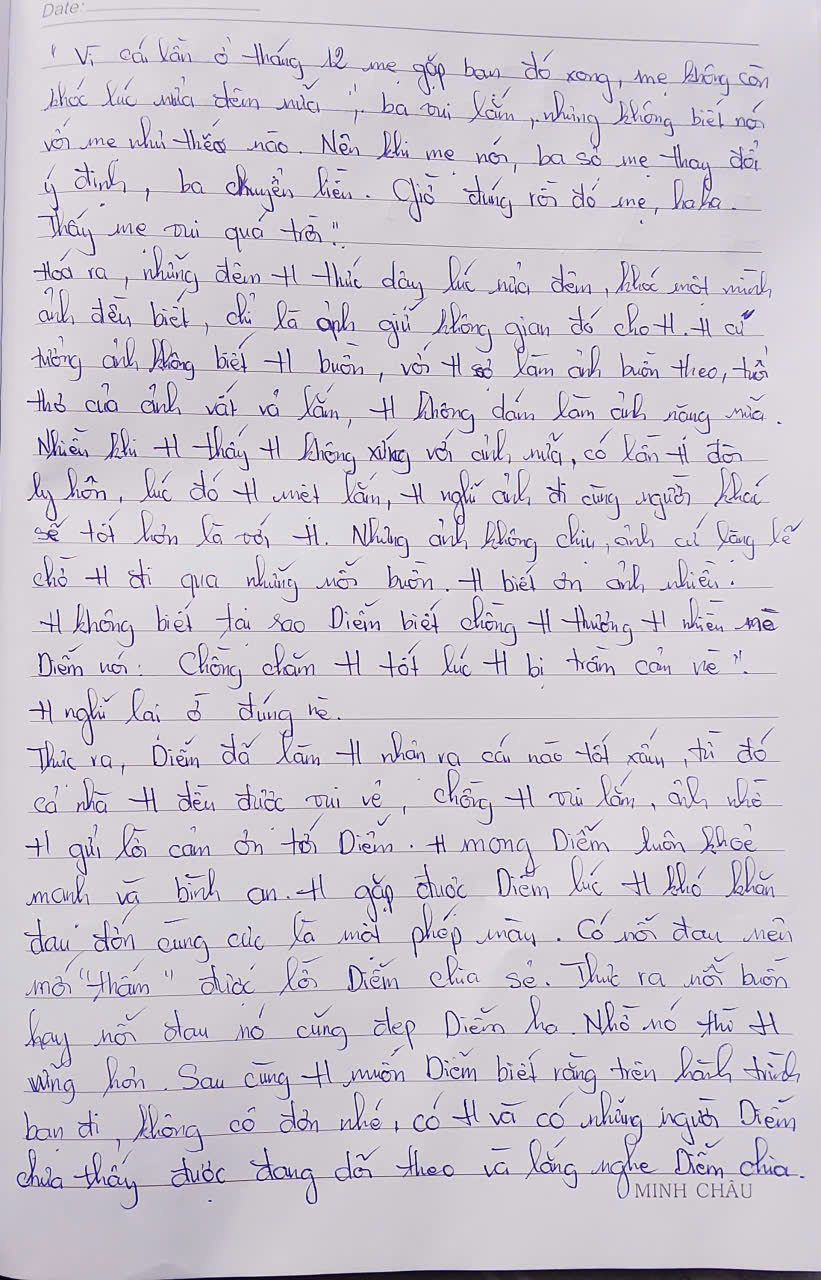 Date:
" Vì cái lần ở tháng 12 mẹ gặp bạn đó xong, mẹ không còn
khóc lúc nửa đêm nữa ", ba vui lắm, nhưng không biết nói
với mẹ như thế nào. Nên khi mẹ nói, ba sợ mẹ thay đổi
ý định, ba chuyển liền. Giờ đúng rồi đó mẹ, haha.
Thấy mẹ vui quá trời".
Hoá ra, những đêm H thức dậy lúc nửa đêm, khóc một mình
ảnh đều biết, chỉ là ảnh giữ không gian đó cho H. H cứ
tưởng ảnh không biết H buồn, với H sợ làm ảnh buồn theo, tuổi
thơ của ảnh vất vả lắm, H không dám làm ảnh nặng nữa.
Nhiều khi H thấy H không xứng với ảnh nữa, có lần H đòi
ly hôn, lúc đó H mệt lắm, H nghĩ ảnh đi cùng người khác
sẽ tốt hơn là với H. Nhưng ảnh không chịu, ảnh cứ lặng lẽ
chờ H đi qua những nỗi buồn. H biết ơn ảnh nhiều.
H không biết tại sao Diễm biết chồng H thương H nhiều mà
Diễm nói: Chồng chăm H tốt lúc H bị trầm cảm nè ".
H nghĩ lại ồ đúng nè.
Thực ra, Diễm đã làm H nhận ra cái nào tốt xấu, từ đó
cả nhà H đều được vui vẻ, chồng H vui lắm, ảnh nhờ
H gửi lời cảm ơn tới Diễm. H mong Diễm luôn khoẻ
mạnh và bình an. H gặp được Diễm lúc H khó khăn
đau đớn cùng cực là một phép màu. Có nỗi đau nên
mới "thấm" được lời Diễm chia sẻ. Thực ra nỗi buồn
hay nỗi đau nó cũng đẹp Diễm ha. Nhờ nó thì H
vững hơn. Sau cùng H muốn Diễm biết rằng trên hành trình
bạn đi, không cô đơn nhé, có H và có những người Diễm
chưa thấy được đang dõi theo và lắng nghe Diễm chia.
MINH CHÂU